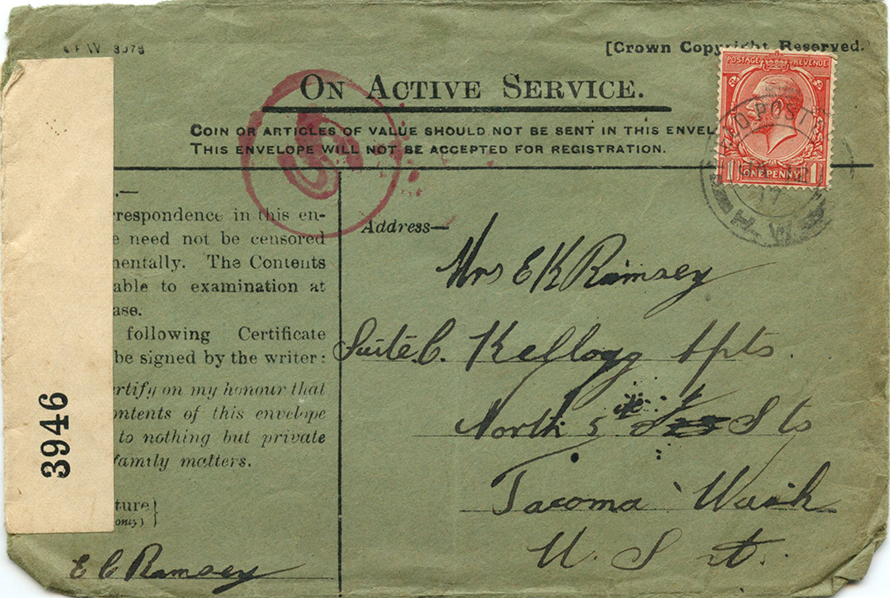 [Crown Copyright Reserved.
ON ACTIVE SERVICE.
COIN OR ARTICLES OF VALUE SHOULD NOT BE SENT IN THIS ENVEL
THIS ENVELOPE WILL NOT BE ACCEPTED FOR REGISTRATION.
POSTAGE REVENUE
ONE PENNY
D POST
17
H W
rrespondence in this en-
e need not be censored
mentally. The Contents
able to examination at
ase.
following Certificate
be signed by the writer:
ertify on my honour that
ontents of this envelope
to nothing but private
family matters.
ture
only)
E C Ramsey
3946
Address—
Mrs E K Ramsey
Suite C. Kellogg Apts.
North 5 Sts
Tacoma Wash
U. S. A.